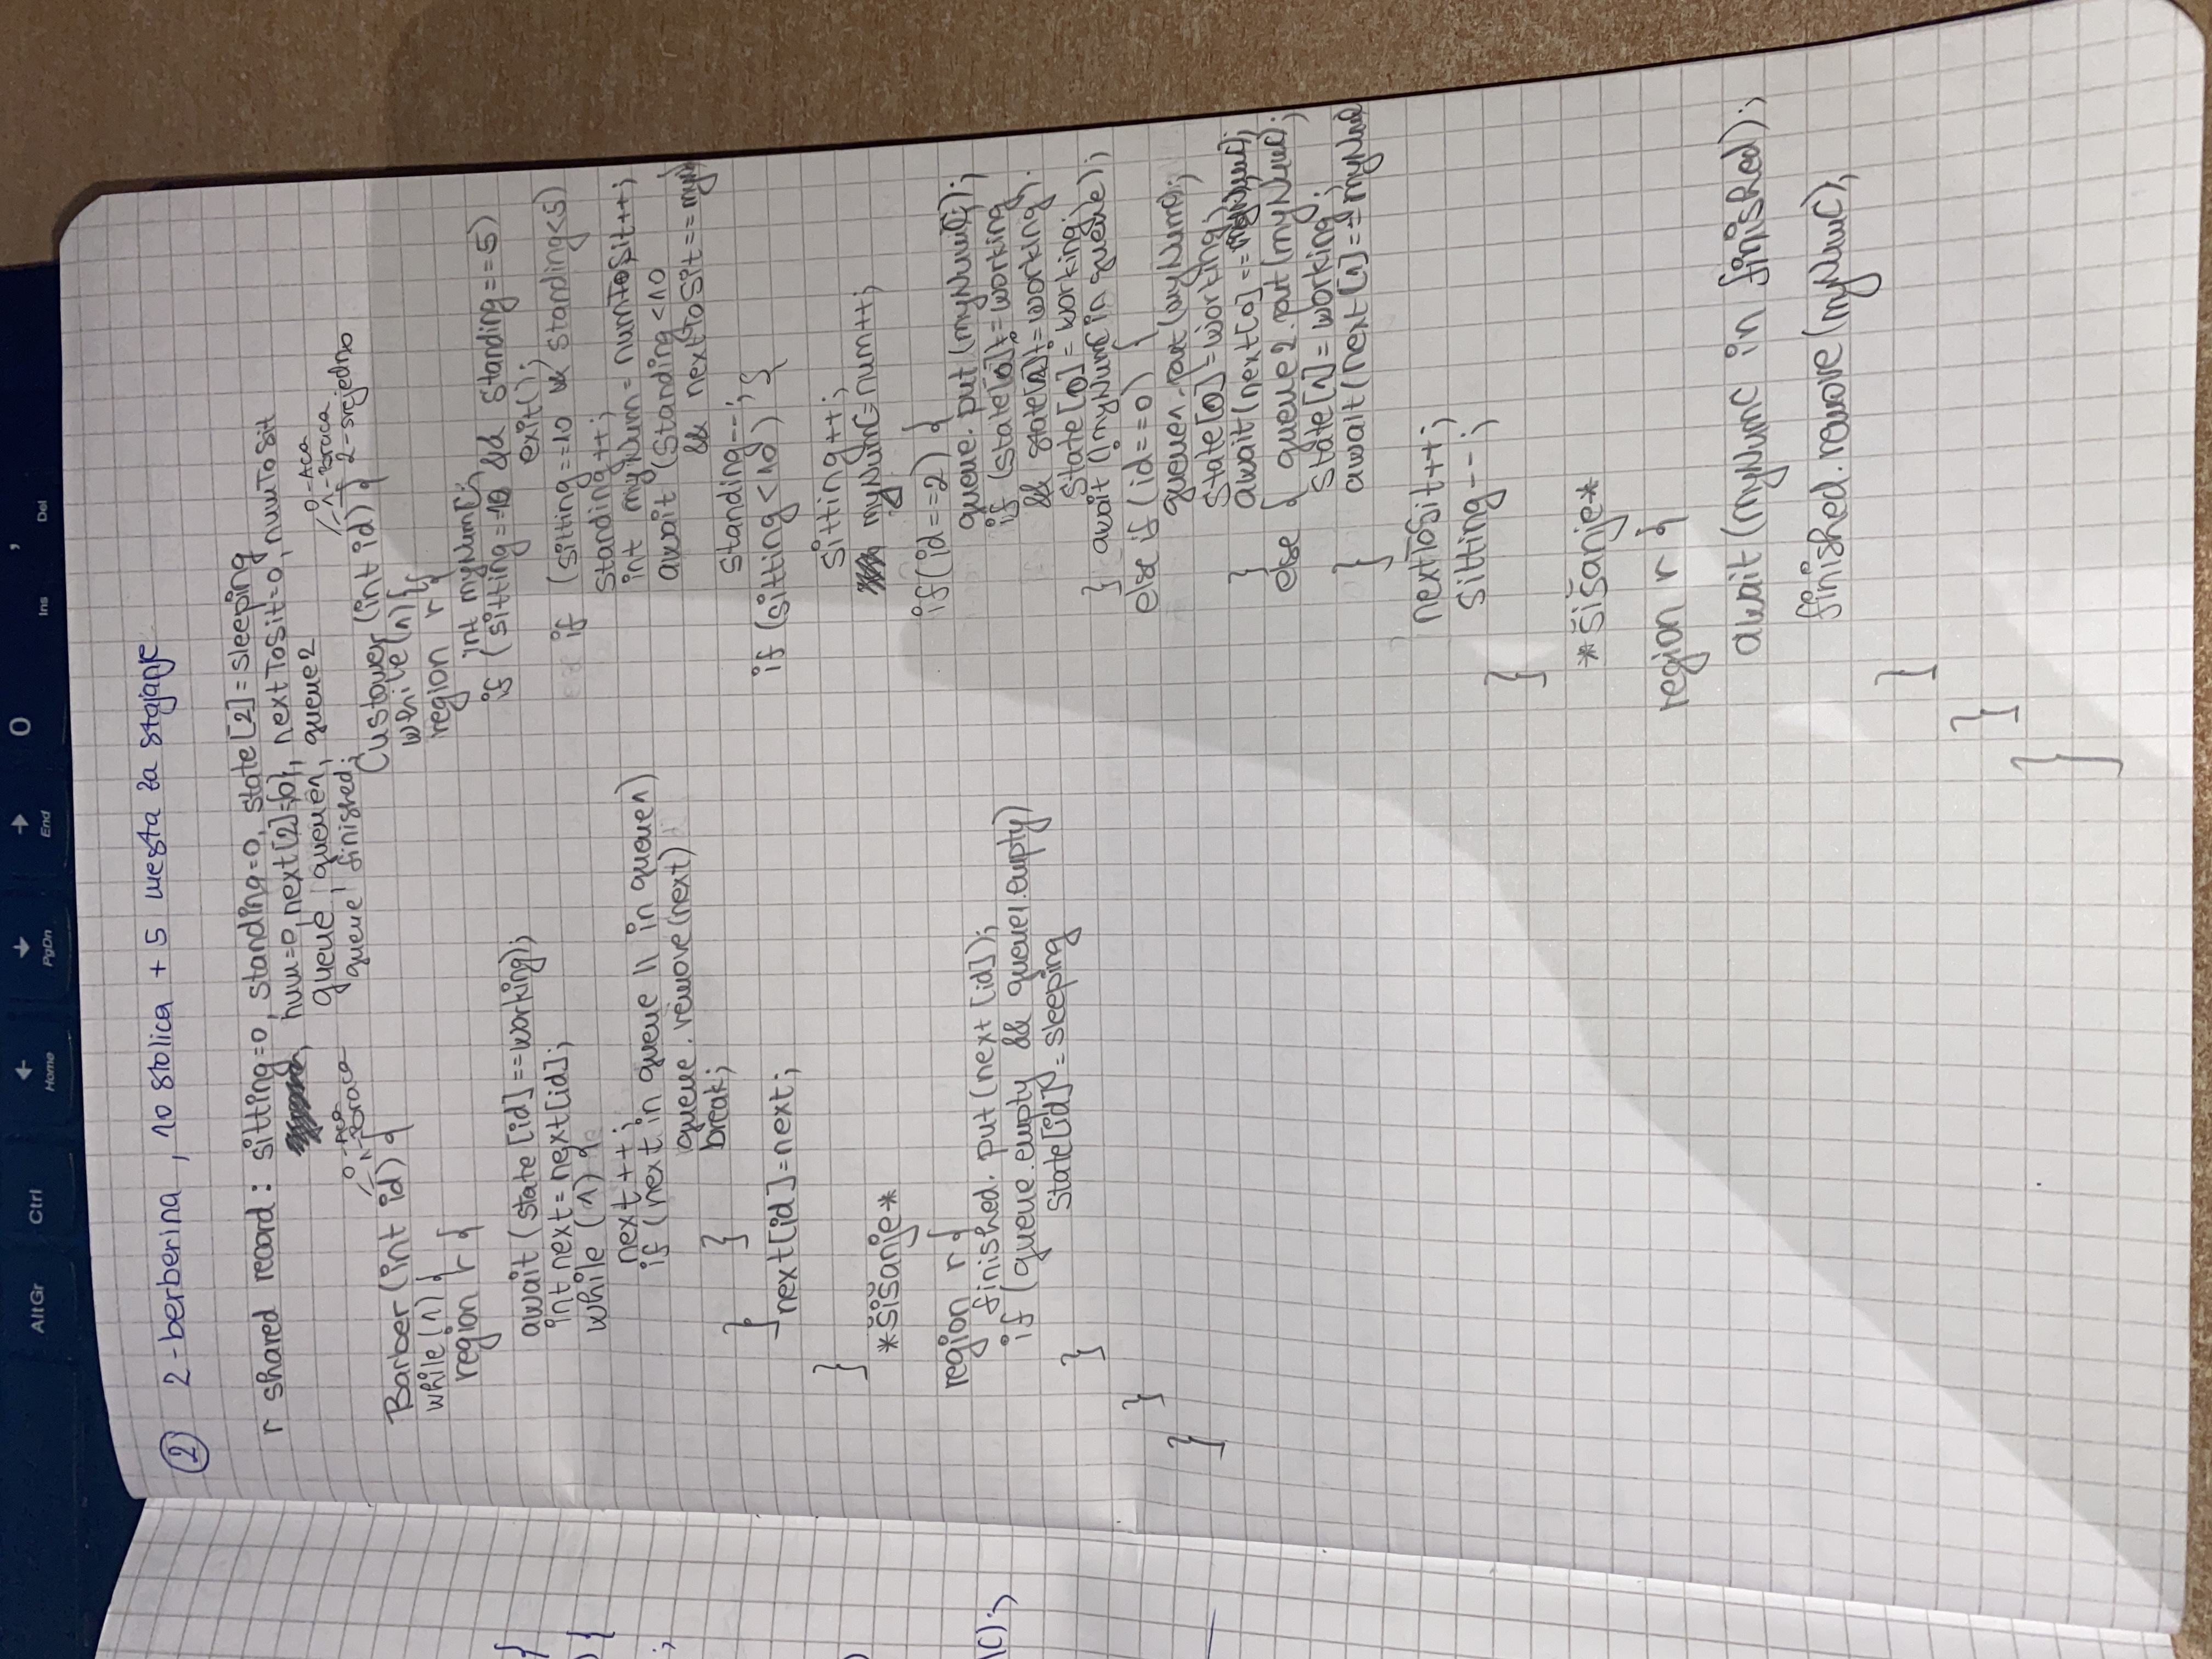 AltGr Ctrl Home PgDn End O Ins , Del
② 2-berberina, 10 stolica + 5 mesta za stajanje
r shared record: sitting=0, standing=0, state[2]=sleeping
, num=0, next[2]={0}, nextToSit=0, numToSit
queue, queue1, queue2
queue finished;
0-Aca
1-Braca
Barber (int id) {
while(1) {
region r {
await (state[id]==working);
int next=next[id];
while (1) {
next++;
if (next in queue || in queue1)
queue.remove(next)
} break;
}
next[id]=next;
}
*šišanje*
region r {
finished.put(next[id]);
if (queue.empty && queue1.empty)
state[id]=sleeping
}
}
}
0-Aca
1-Braca
2-svejedno
Customer (int id) {
while(1){
region r {
int myNumC;
if (sitting==10 && standing==5)
exit();
if (sitting==10 && standing<5)
standing++;
int myNum=numToSit++;
await (standing<10
&& nextToSit==myN
standing--;
if (sitting<10) {
sitting++;
myNumC=num++;
if(id==2) {
queue.put(myNumC);
if (state[0]!=working
&& state[1]!=working)
state[0]=working;
} await(!myNumC in queue);
else if (id==0) {
queue1.put(myNumC);
state[0]=working;
} await(next[0]==myNumC);
else { queue2.put(myNumC);
state[1]=working;
} await(next[1]==myNumC
nextToSit++;
sitting--;
}
*šišanje*
region r {
await(myNumC in finished);
finished.remove(myNumC);
}
}
}
{
{
;
C);